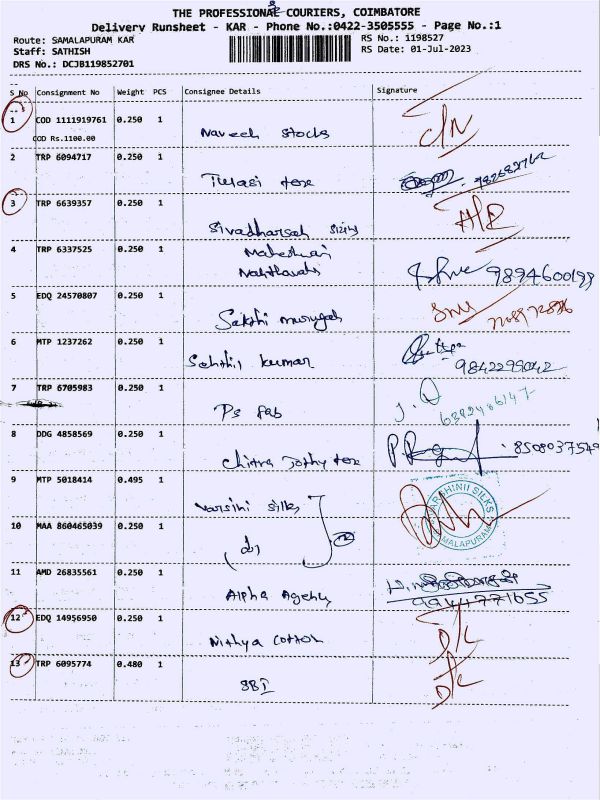 THE PROFESSIONAL COURIERS, COIMBATORE
Delivery Runsheet - KAR - Phone No.:0422-3505555 - Page No.:1
Route: SAMALAPURAM KAR RS No.: 1198527
Staff: SATHISH RS Date: 01-Jul-2023
DRS No.: DCJB119852701
S No Consignment No Weight PCS Consignee Details Signature
1 COD 1111919761 0.250 1
COD Rs.1100.00 Naveen Stocks
2 TRP 6094717 0.250 1
Tulasi tex
3 TRP 6639357 0.250 1
Sivadharsah sizing
4 TRP 6337525 0.250 1 Maheshwari
9894600199
5 EDQ 24570807 0.250 1
Sakthi murugan
6 MTP 1237262 0.250 1
Senthil kumar 9842299042
7 TRP 6705983 0.250 1
Ps fab J. D 6382486147
8 DDG 4858569 0.250 1
Chitra Jothy tex 8508037549
9 MTP 5018414 0.495 1
Varsini silks
VARSHINII SILKS
SAMALAPURAM
10 MAA 860465039 0.250 1
11 AMD 26835561 0.250 1
Alpha Agency 9944771655
12 EDQ 14956950 0.250 1 D/C
Nithya cotton
13 TRP 6095774 0.480 1 D/C
SBI